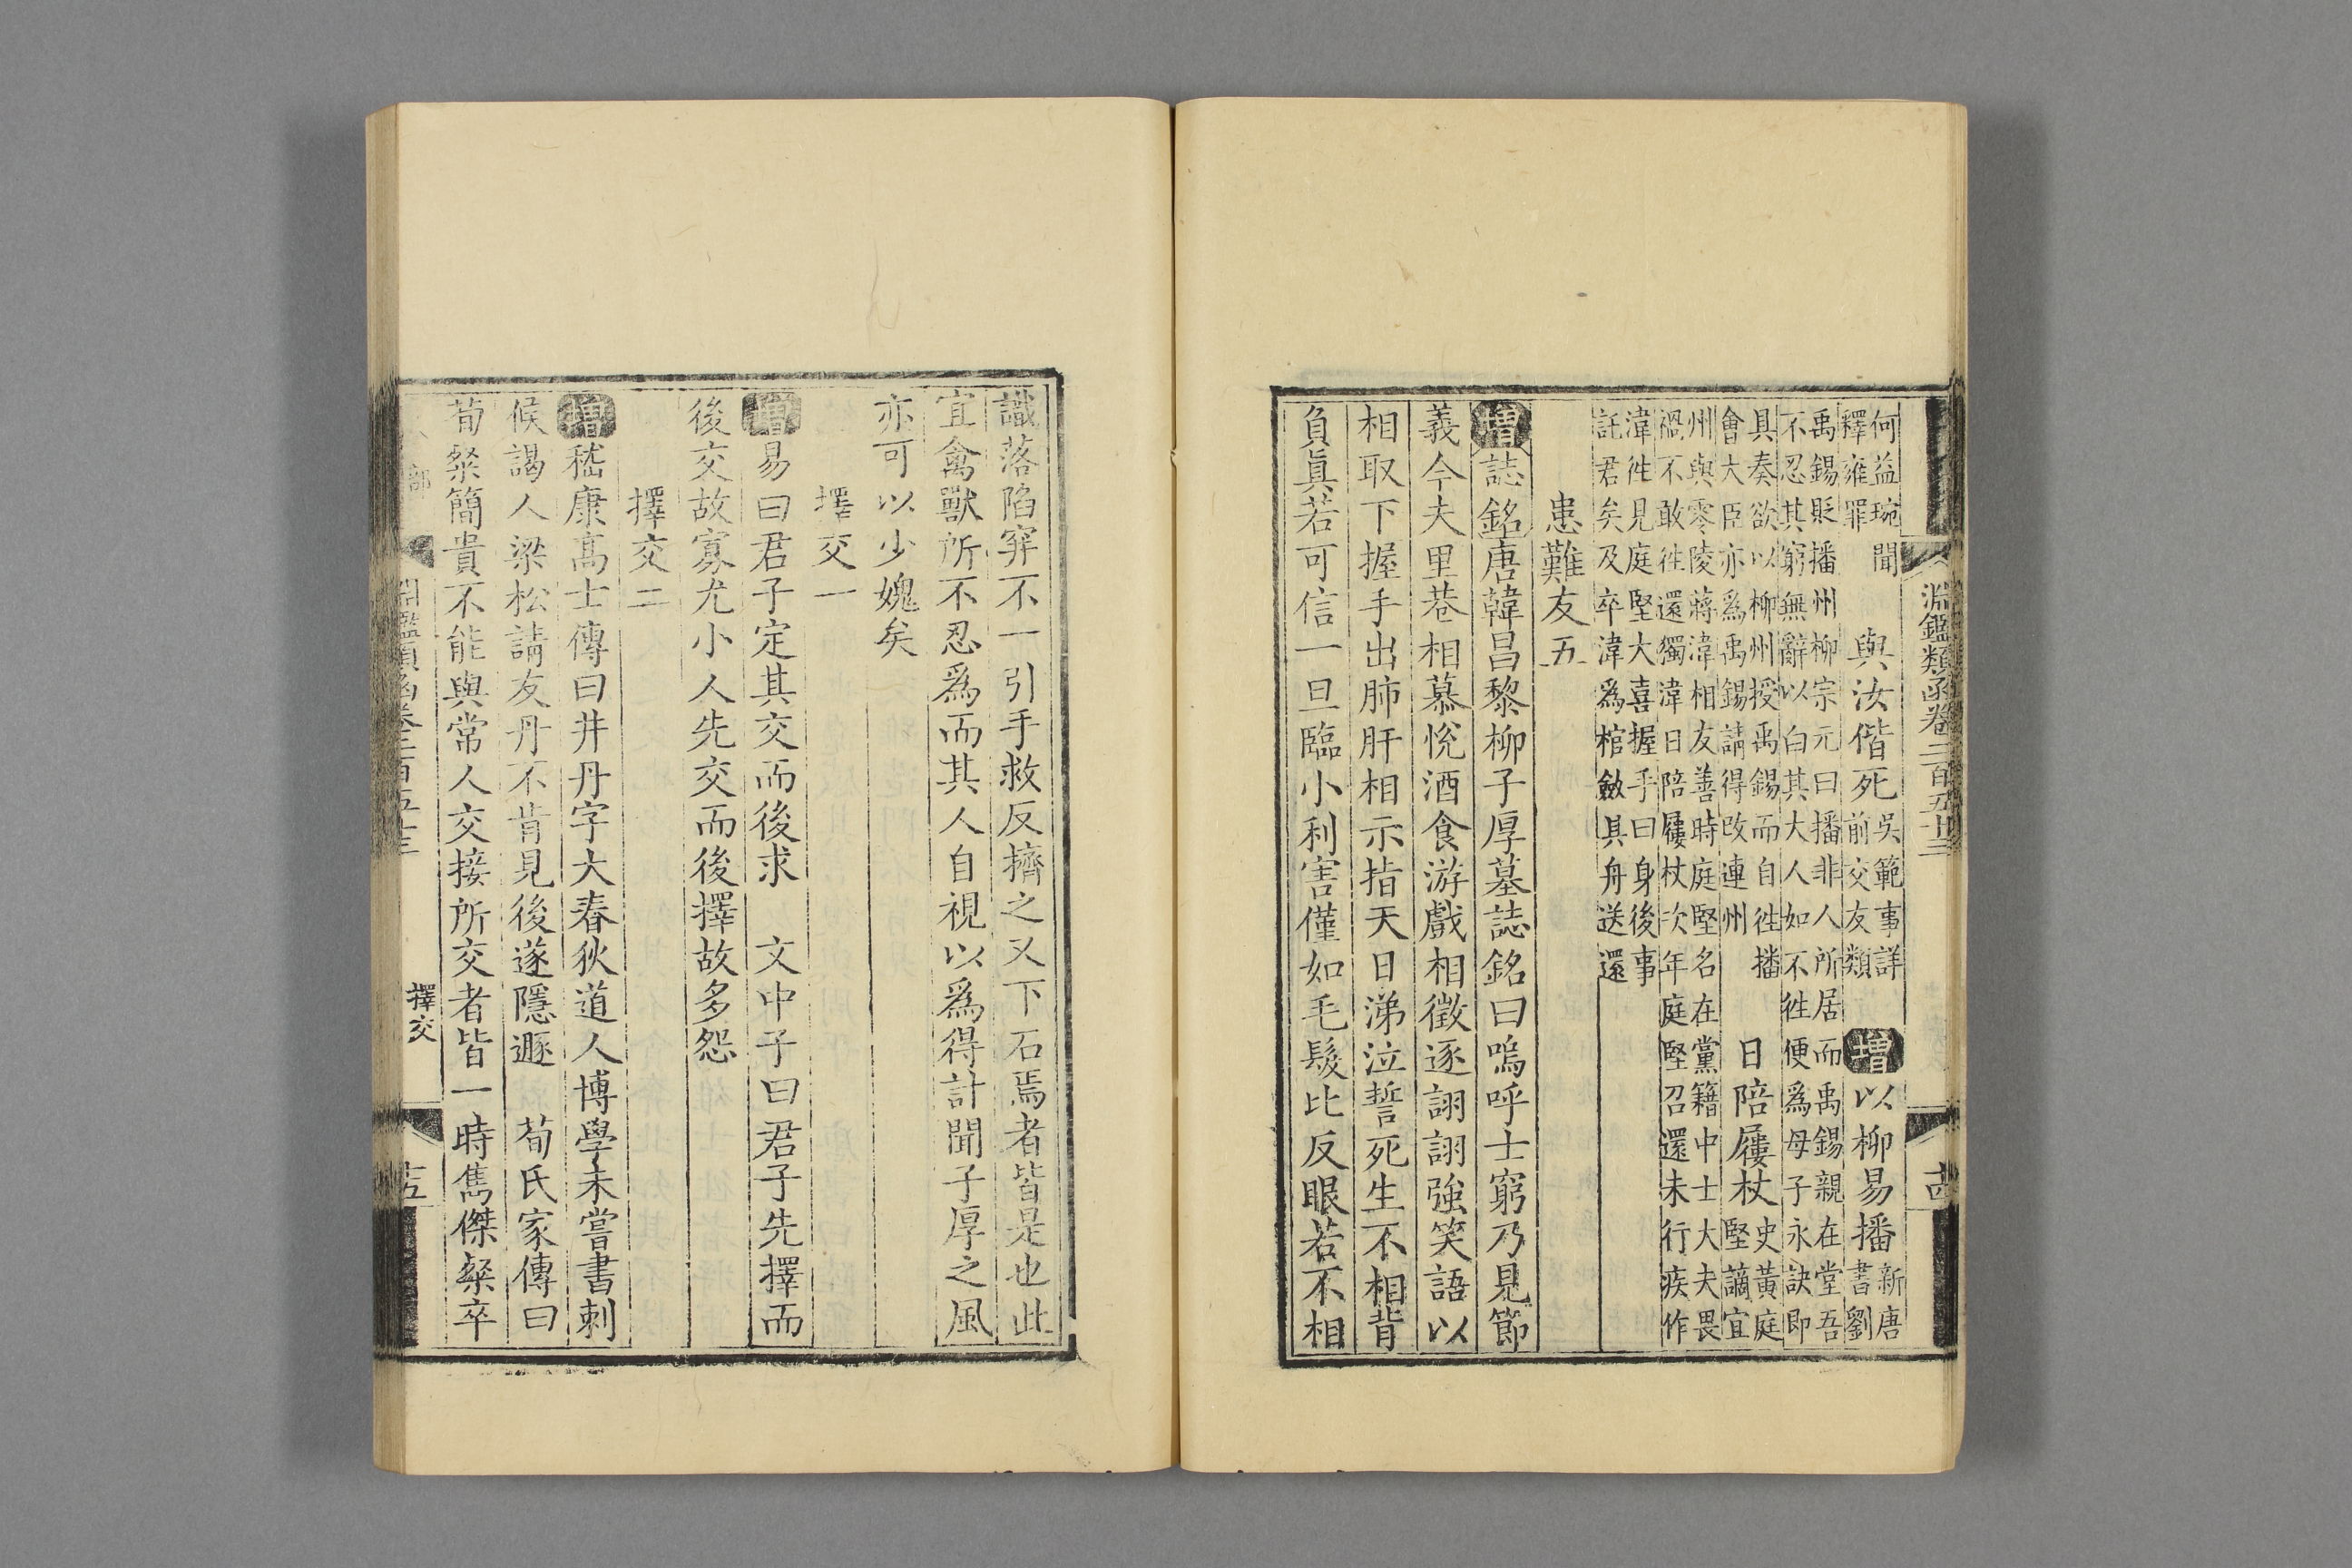 淵鑑類函卷二百五十三
十四
何益琬聞
釋雍罪
與汝偕死
吳範事詳
前交友類
增以柳易播
新唐
書劉
禹錫貶播州柳宗元曰播非人所居而禹錫親在堂吾
不忍其窮無辭以白其大人如不徃便爲母子永訣即
具奏欲以柳州授禹錫而自徃播
會大臣亦爲禹錫請得改連州
日陪屨杖
史黃庭
堅謫宜
州與零陵蔣湋相友善時庭堅名在黨籍中士大夫畏
禍不敢徃還獨湋日陪屨杖次年庭堅召還未行疾作
湋徃見庭堅大喜握手曰身後事
託君矣及卒湋爲棺斂具舟送還
患難友五
增誌銘唐韓昌黎柳子厚墓誌銘曰嗚呼士窮乃見節
義今夫里巷相慕悅酒食游戲相徵逐詡詡強笑語以
相取下握手出肺肝相示指天日涕泣誓死生不相背
負眞若可信一旦臨小利害僅如毛髮比反眼若不相
識落陷穽不一引手救反擠之又下石焉者皆是也此
宜禽獸所不忍爲而其人自視以爲得計聞子厚之風
亦可以少媿矣
擇交一
增易曰君子定其交而後求　文中子曰君子先擇而
後交故寡尤小人先交而後擇故多怨
擇交二
增嵇康高士傳曰井丹字大春扶道人博學未嘗書刺
候謁人梁松請友丹不肯見後遂隱遯　荀氏家傳曰
荀粲簡貴不能與常人交接所交者皆一時雋傑粲卒
人部
淵鑑類函卷二百五十三
擇交
十五